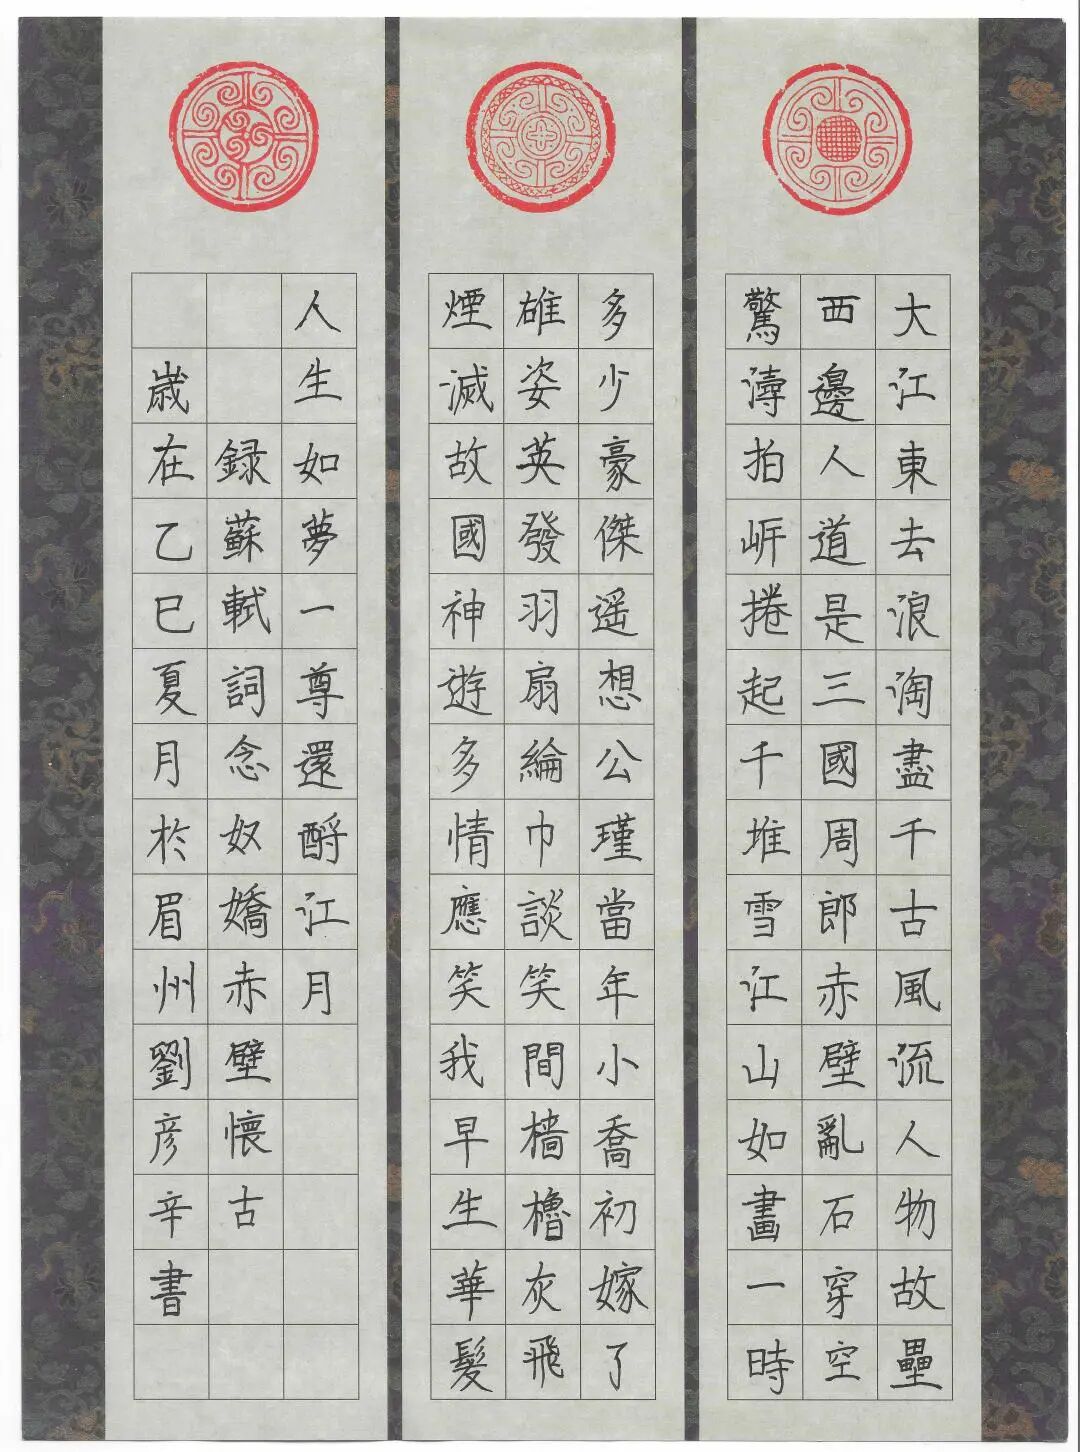 大江東去浪淘盡千古風流人物故壘
西邊人道是三國周郎赤壁亂石穿空
驚濤拍岍捲起千堆雪江山如畫一時
多少豪傑遥想公瑾當年小喬初嫁了
雄姿英發羽扇綸巾談笑間檣櫓灰飛
煙滅故國神遊多情應笑我早生華髮
人生如夢一尊還酹江月
録蘇軾詞念奴嬌赤壁懷古
歲在乙巳夏月於眉州劉彦辛書